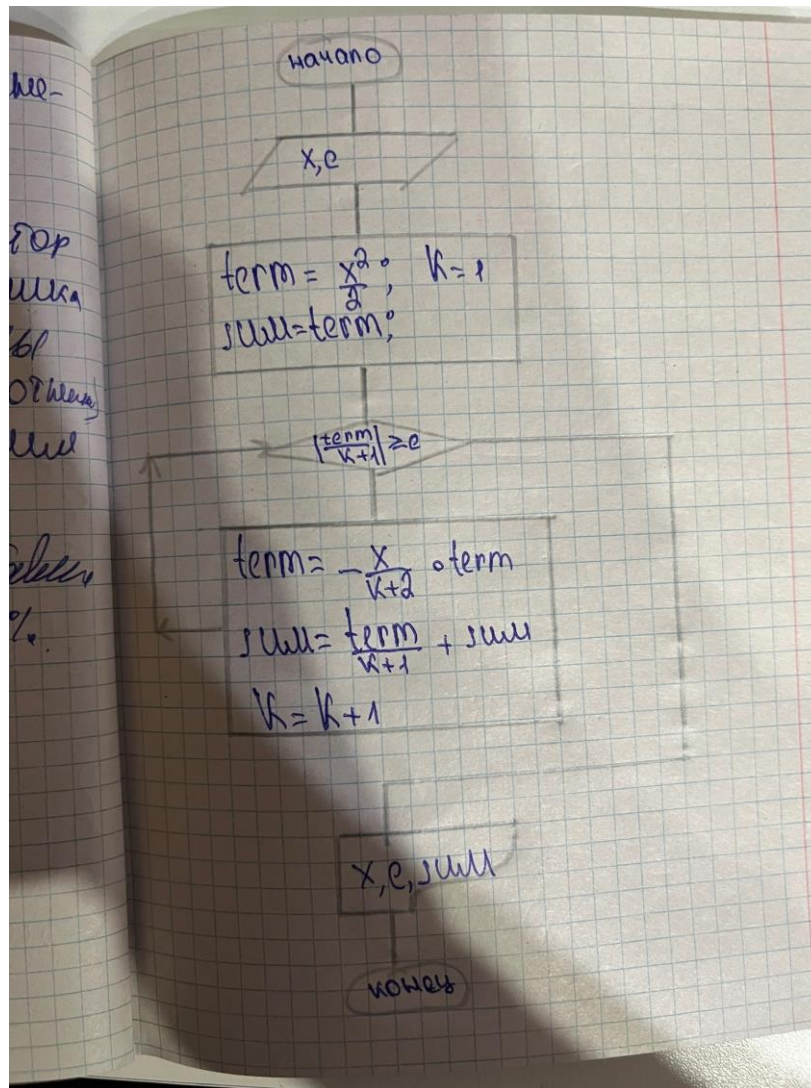 начало
x, e
term = x²/2; K = 1
sum = term;
|term/K+1| ≥ e
term = -x/K+2 ∘ term
sum = term/K+1 + sum
K = K + 1
x, e, sum
конец